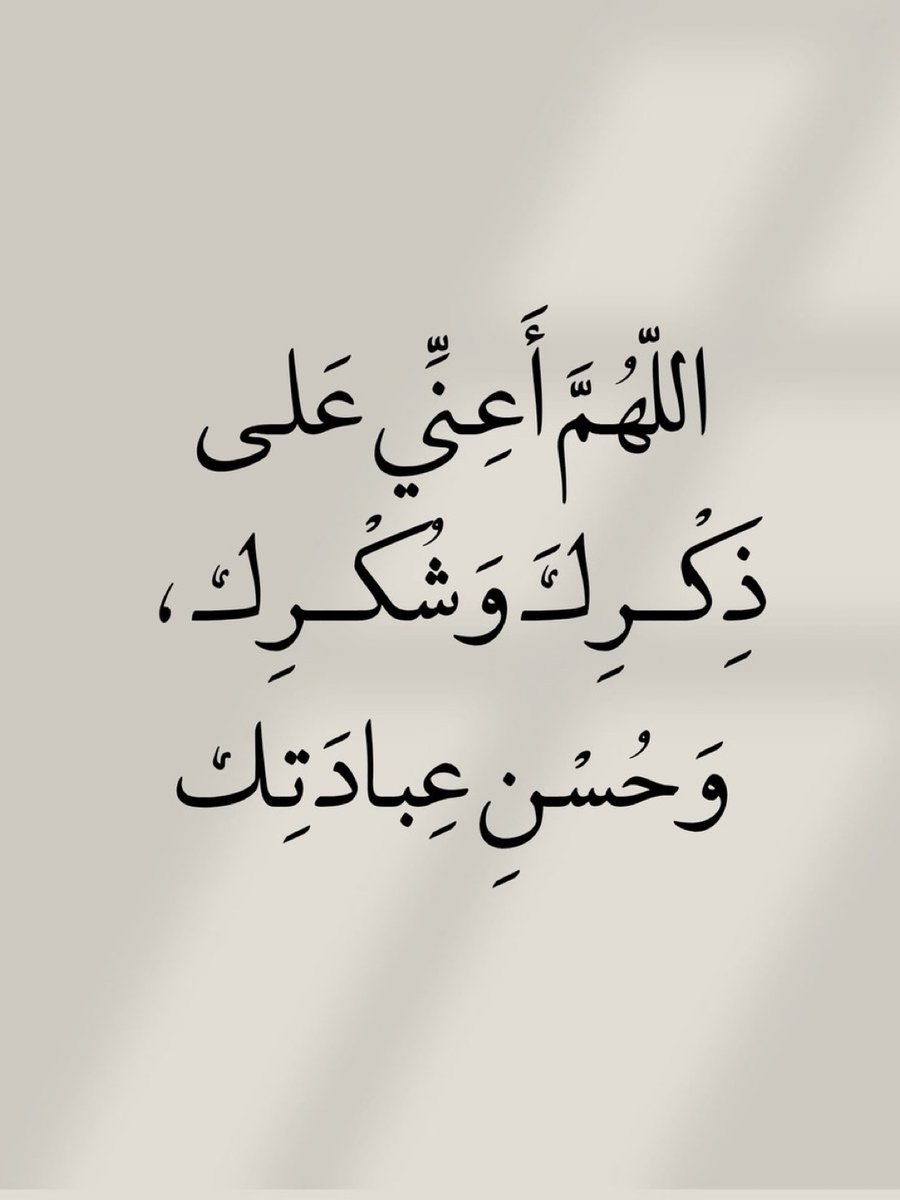 اللّهُمَّ أَعِنِّي عَلى
ذِكْرِكَ وَشُكْرِك،
وَحُسْنِ عِبادَتِك